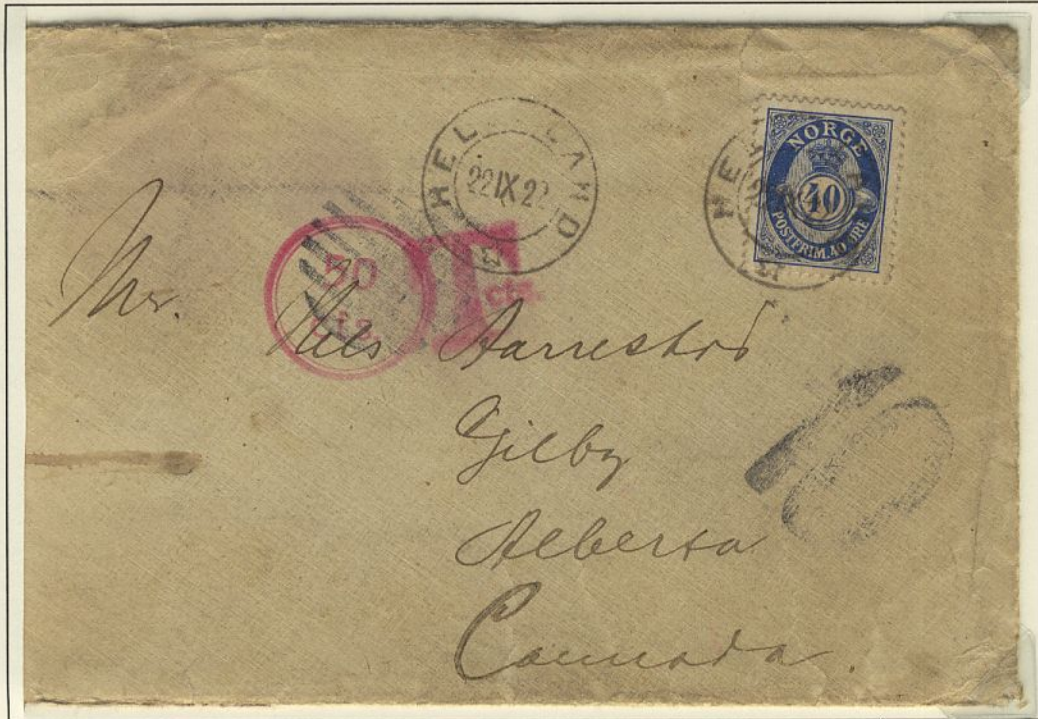 HELLELAND
22 IX 22
NORGE
40
POSTFRIM. 40 ØRE
50
cts.
T
cts.
Mr. Nils Aarrestad
Gilby
Alberta
Cannada.
10